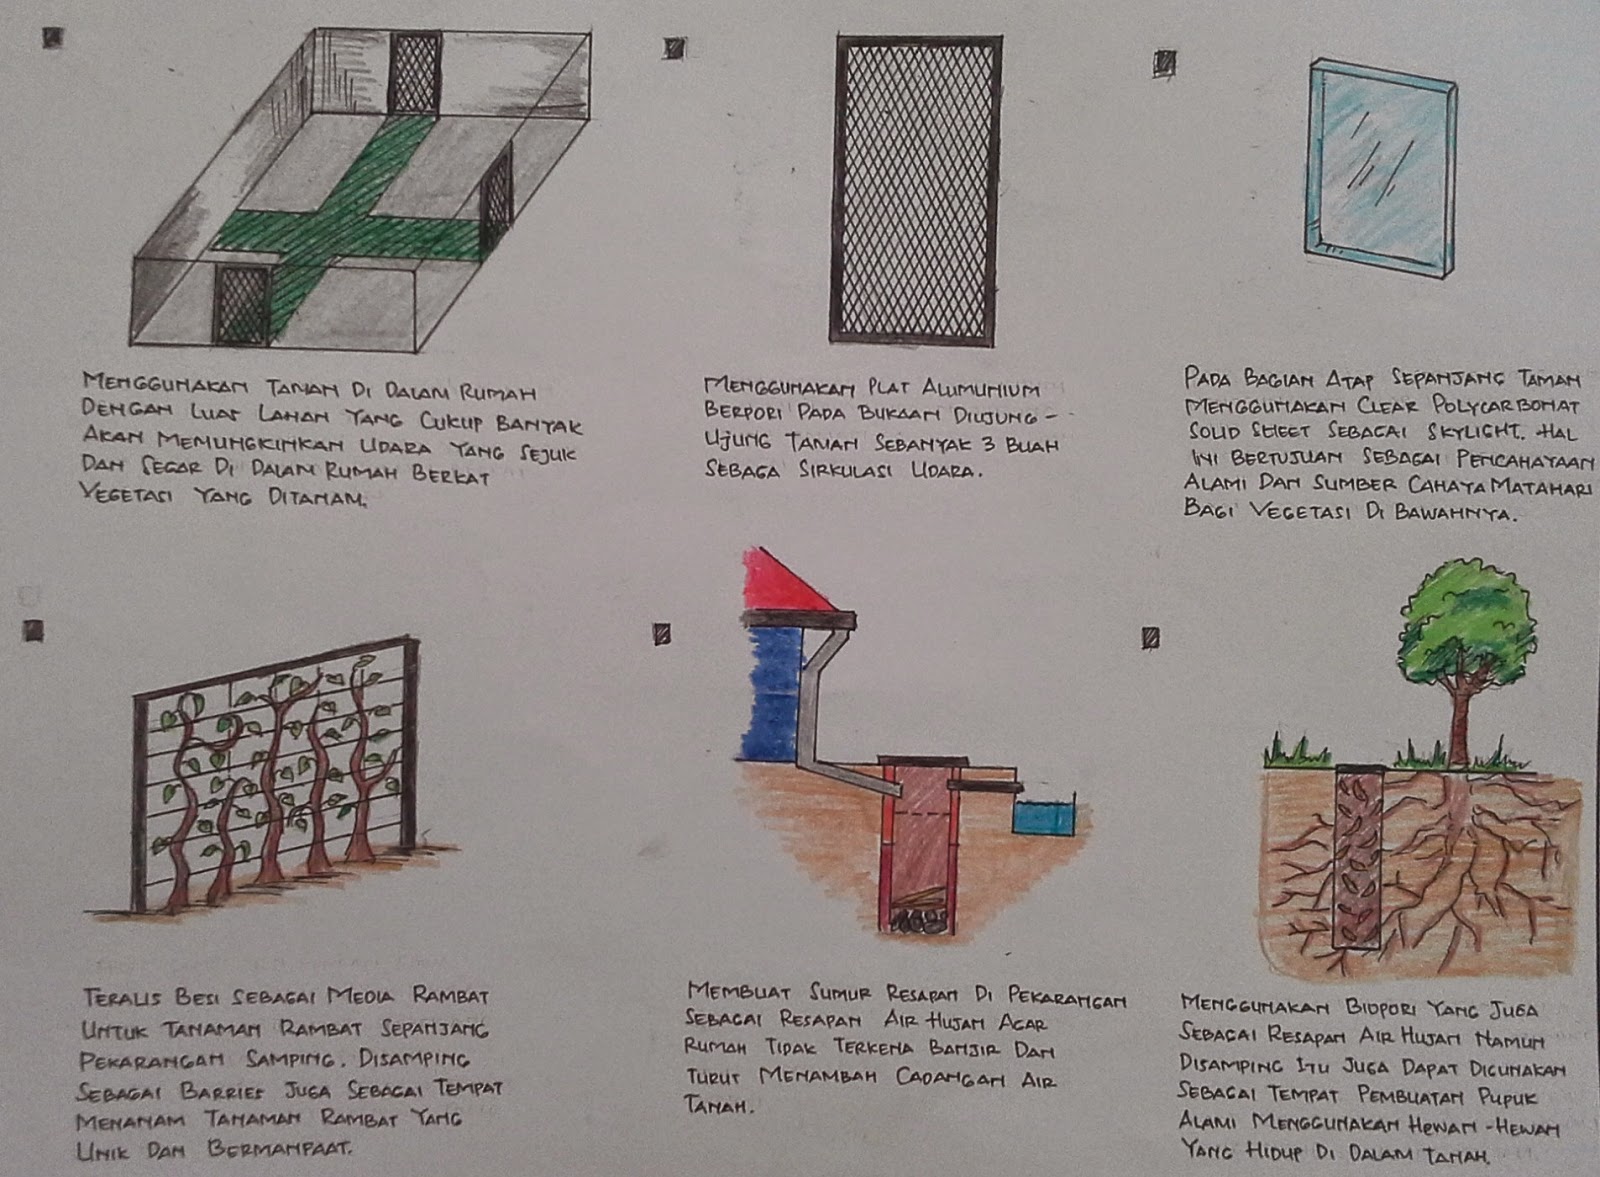 MENGGUNAKAN TAMAN DI DALAM RUMAH
DENGAN LUAS LAHAN YANG CUKUP BANYAK
AKAN MEMUNGKINKAN UDARA YANG SEJUK
DAN SEGAR DI DALAM RUMAH BERKAT
VEGETASI YANG DITANAM.
MENGGUNAKAN PLAT ALUMUNIUM
BERPORI PADA BUKAAN DIUJUNG -
UJUNG TAMAN SEBANYAK 3 BUAH
SEBAGA SIRKULASI UDARA.
PADA BAGIAN ATAP SEPANJANG TAMAN
MENGGUNAKAN CLEAR POLYCARBONAT
SOLID SHEET SEBAGAI SKYLIGHT. HAL
INI BERTUJUAN SEBAGAI PENCAHAYAAN
ALAMI DAN SUMBER CAHAYA MATAHARI
BAGI VEGETASI DI BAWAHNYA.
TERALIS BESI SEBAGAI MEDIA RAMBAT
UNTUK TANAMAN RAMBAT SEPANJANG
PEKARANGAN SAMPING. DISAMPING
SEBAGAI BARRIER JUGA SEBAGAI TEMPAT
MENANAM TANAMAN RAMBAT YANG
UNIK DAN BERMANFAAT.
MEMBUAT SUMUR RESAPAN DI PEKARANGAN
SEBAGAI RESAPAN AIR HUJAN AGAR
RUMAH TIDAK TERKENA BANJIR DAN
TURUT MENAMBAH CADANGAN AIR
TANAH.
MENGGUNAKAN BIOPORI YANG JUGA
SEBAGAI RESAPAN AIR HUJAN NAMUN
DISAMPING ITU JUGA DAPAT DIGUNAKAN
SEBAGAI TEMPAT PEMBUATAN PUPUK
ALAMI MENGGUNAKAN HEWAN - HEWAN
YANG HIDUP DI DALAM TANAH.